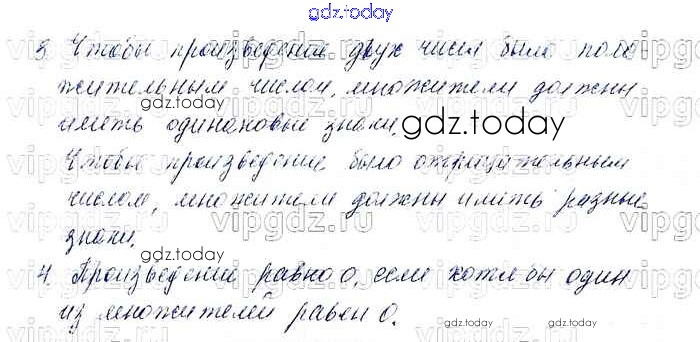 gdz.today
3. Чтобы произведение двух чисел было поло-
жительным числом, множители должны
gdz.today
иметь одинаковые знаки.
gdz.today
Чтобы произведение было отрицательным
числом, множители должны иметь разные
знаки.
gdz.today
4. Произведение равно 0, если хотя бы один
из множителей равен 0.
gdz.today
gdz.today